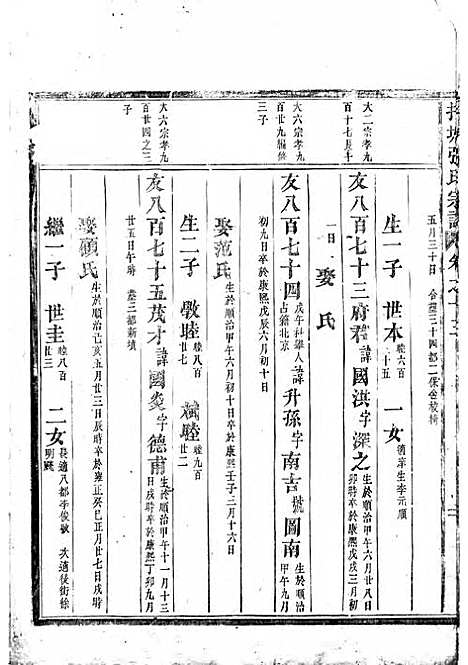 張氏宗譜
五月三十日 合塟三十四都二保金校椅
生一子 世本 睦六百二十五 一女 適庠生李元順
大二宗孝九百十七長子
友八百七十三府君 諱國洪字深之 生於順治甲午六月廿八日卯時卒於康熙戊戌三月初
一日 娶 氏
大六宗孝九百廿九編修三子
友八百七十四 戊午社舉人占籍北京 諱升孫字南吉號圖南 生於順治甲午九月
初九日卒於康熙戊辰六月初十日
娶范氏 生於順治甲午六月初十日卒於康熙壬子三月十六日
生二子 敬睦 睦八百 斌睦 睦九百廿二
大六宗孝九百廿四之三子
友八百七十五茂才 諱國炎字德甫 生於順治甲午十一月十三日戌時卒於康熙丁卯九月
廿五日午時 塟三都新墳
娶顧氏 生於順治乙亥五月廿三日辰時卒於雍正癸巳正月廿七日戌時
繼一子 世圭 睦八百廿三 二女 長適八都李俊號明 次適後街徐